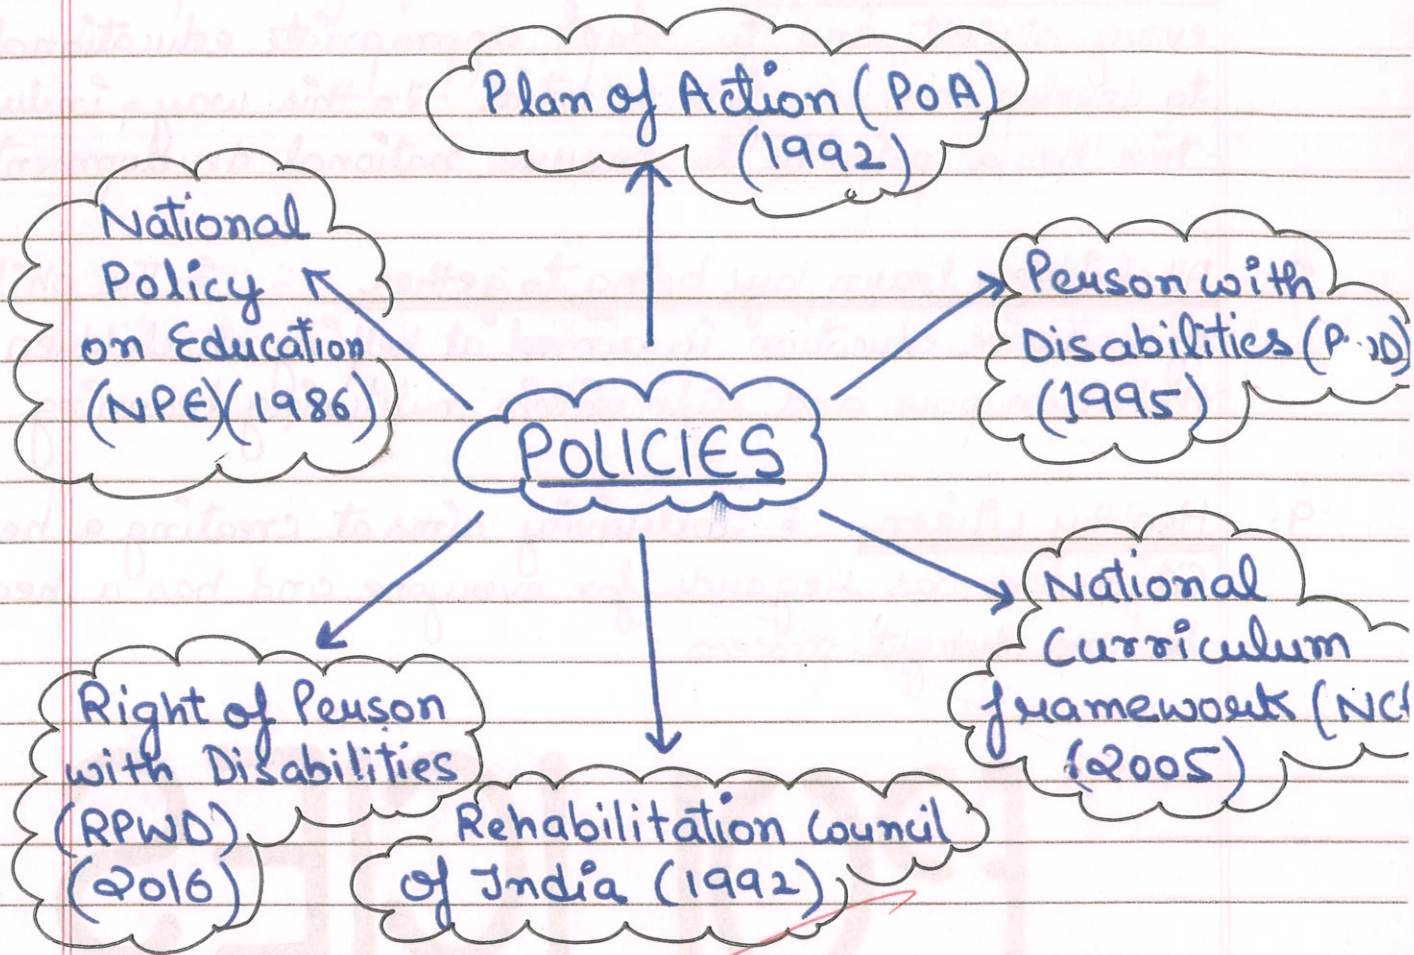 Plan of Action (PoA)
(1992)
National
Policy
on Education
(NPE)(1986)
Person with
Disabilities
(1995)
POLICIES
National
Curriculum
framework
(2005)
Right of Person
with Disabilities
(RPWD)
(2016)
Rehabilitation Council
of India (1992)